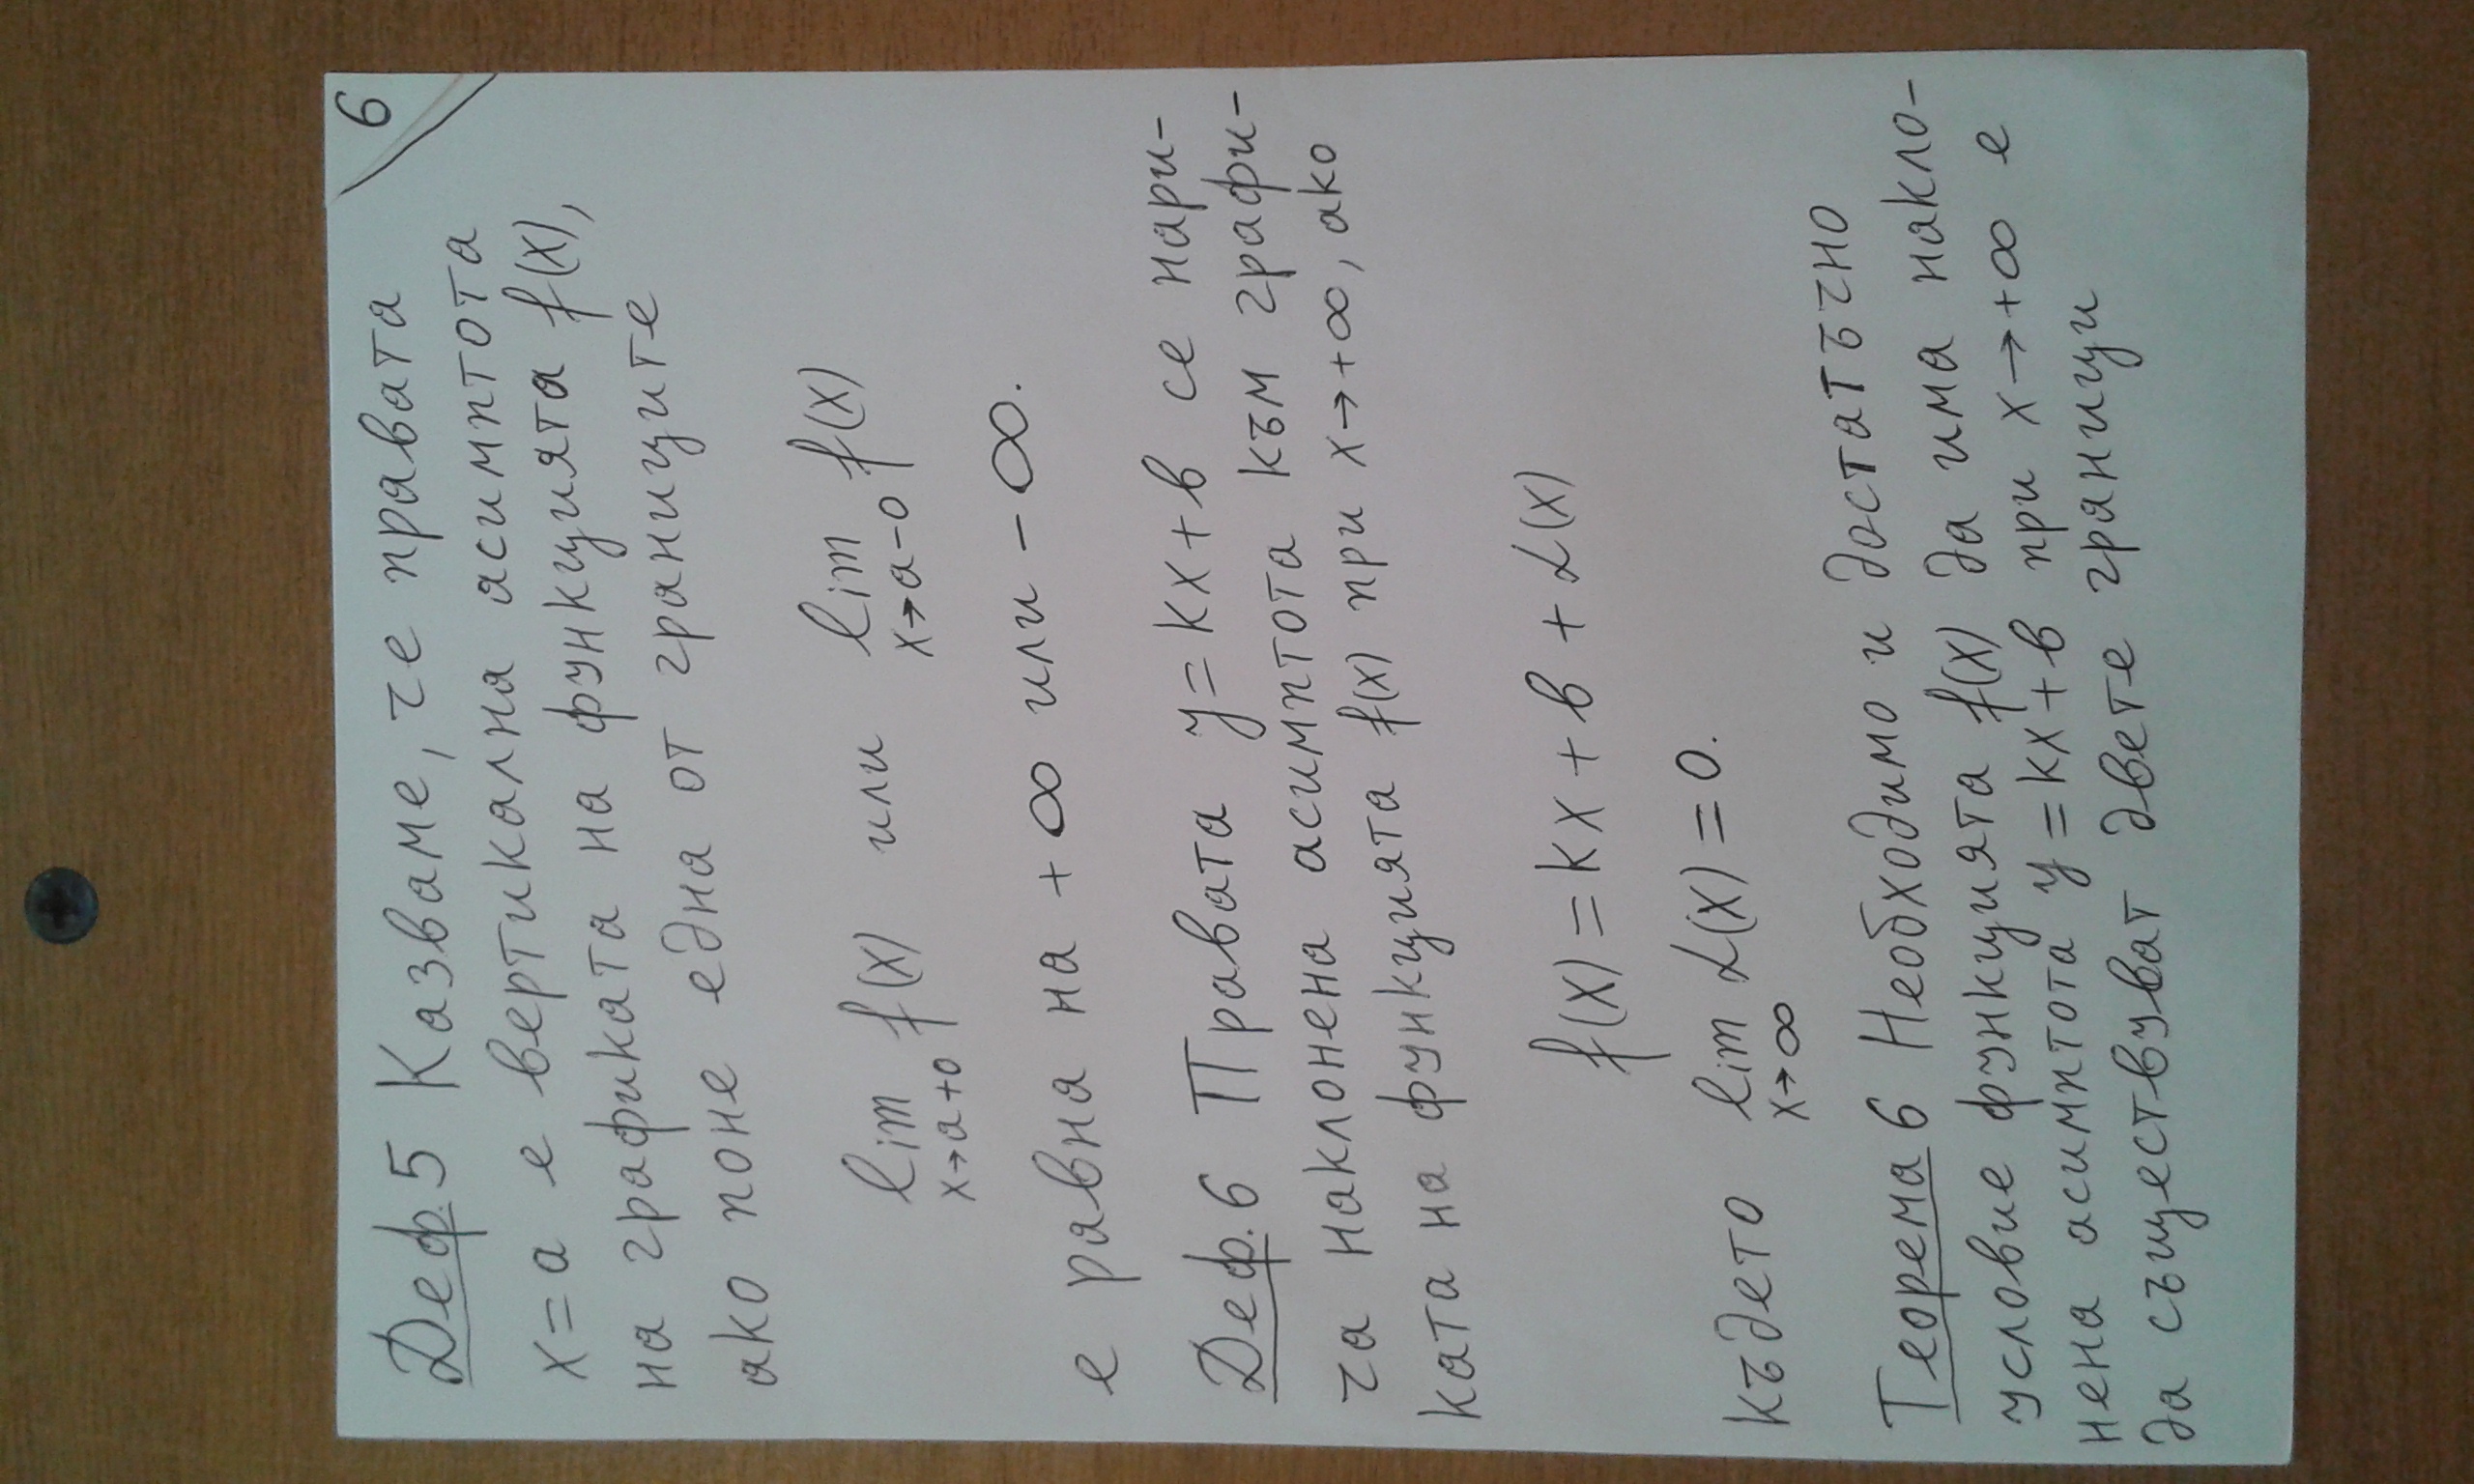 6
Деф.5 Казваме, че правата
x=a е вертикална асимптота
на графиката на функцията f(x),
ако поне една от границите
lim f(x) или lim f(x)
x→a+0 x→a-0
е равна на +∞ или -∞.
Деф.6 Правата y=kx+в се нари-
ча наклонена асимптота към графи-
ката на функцията f(x) при x→+∞, ако
f(x)=kx+в+α(x)
където lim α(x)=0.
x→∞
Теорема 6 Необходимо и достатъчно
условие функцията f(x) да има накло-
нена асимптота y=kx+в при x→+∞ е
да съществуват двете граници